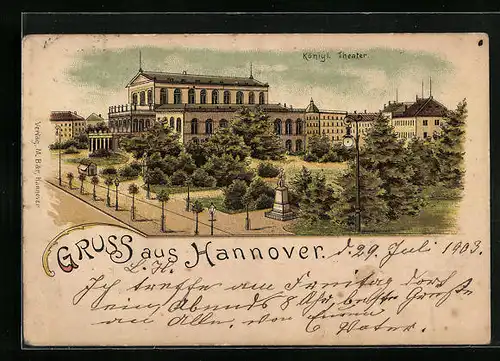 Königl. Theater
Verlag M. Bär, Hannover
GRUSS aus HANNOVER. d. 29. Juli 1903.
L. H.
Ich treffe am Freitag dort
ein Abends 8 Uhr, beste Grüße
an Alle, von
Vater.